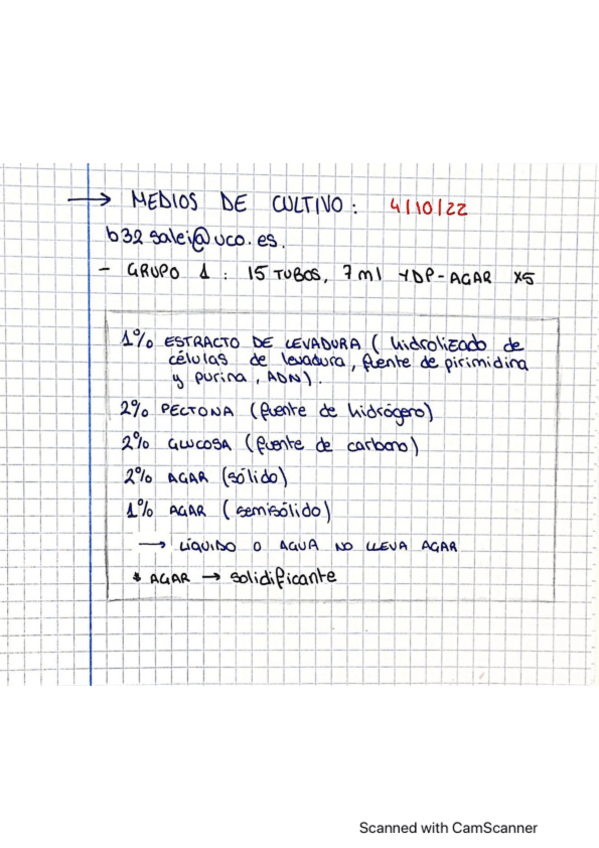 → MEDIOS DE CULTIVO: 4/10/22
b32salei@uco.es.
- GRUPO 1: 15 TUBOS, 7ml YDP-AGAR X5
1% ESTRACTO DE LEVADURA (hidrolizado de
células de levadura, fuente de pirimidina
y purina, ADN).
2% PECTONA (fuente de hidrógeno)
2% GLUCOSA (fuente de carbono)
2% AGAR (sólido)
1% AGAR (semisólido)
→ LÍQUIDO O AGUA NO LLEVA AGAR
* AGAR → solidificante
Scanned with CamScanner